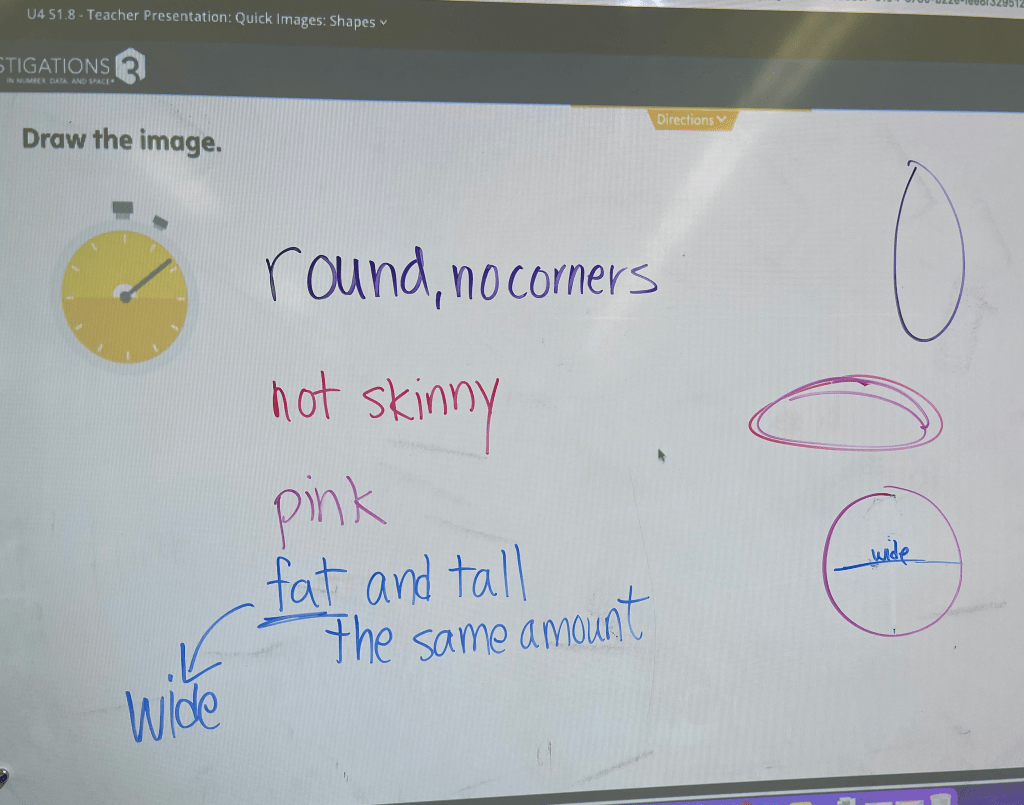 U4 S1.8 - Teacher Presentation: Quick Images: Shapes
STIGATIONS 3
IN NUMBER, DATA, AND SPACE
Directions
Draw the image.
round, no corners
not skinny
pink
wide
fat and tall
the same amount
wide